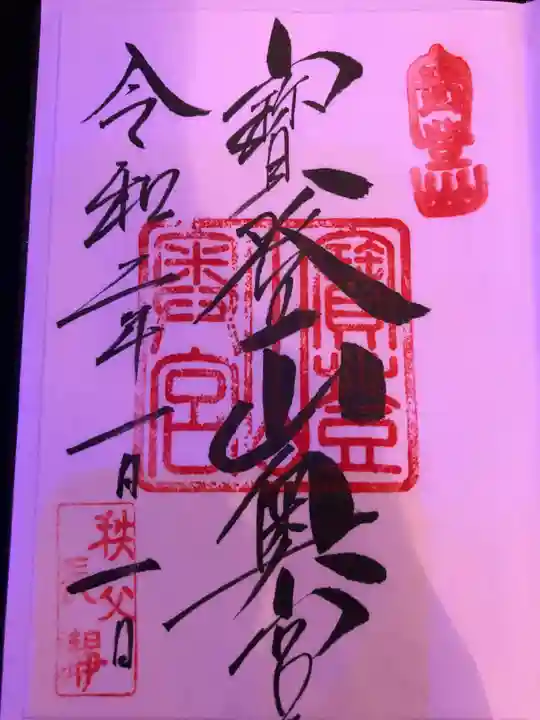 寳登山奥宮
令和二年一月一日
寳登山
奥宮
秩父
長瀞